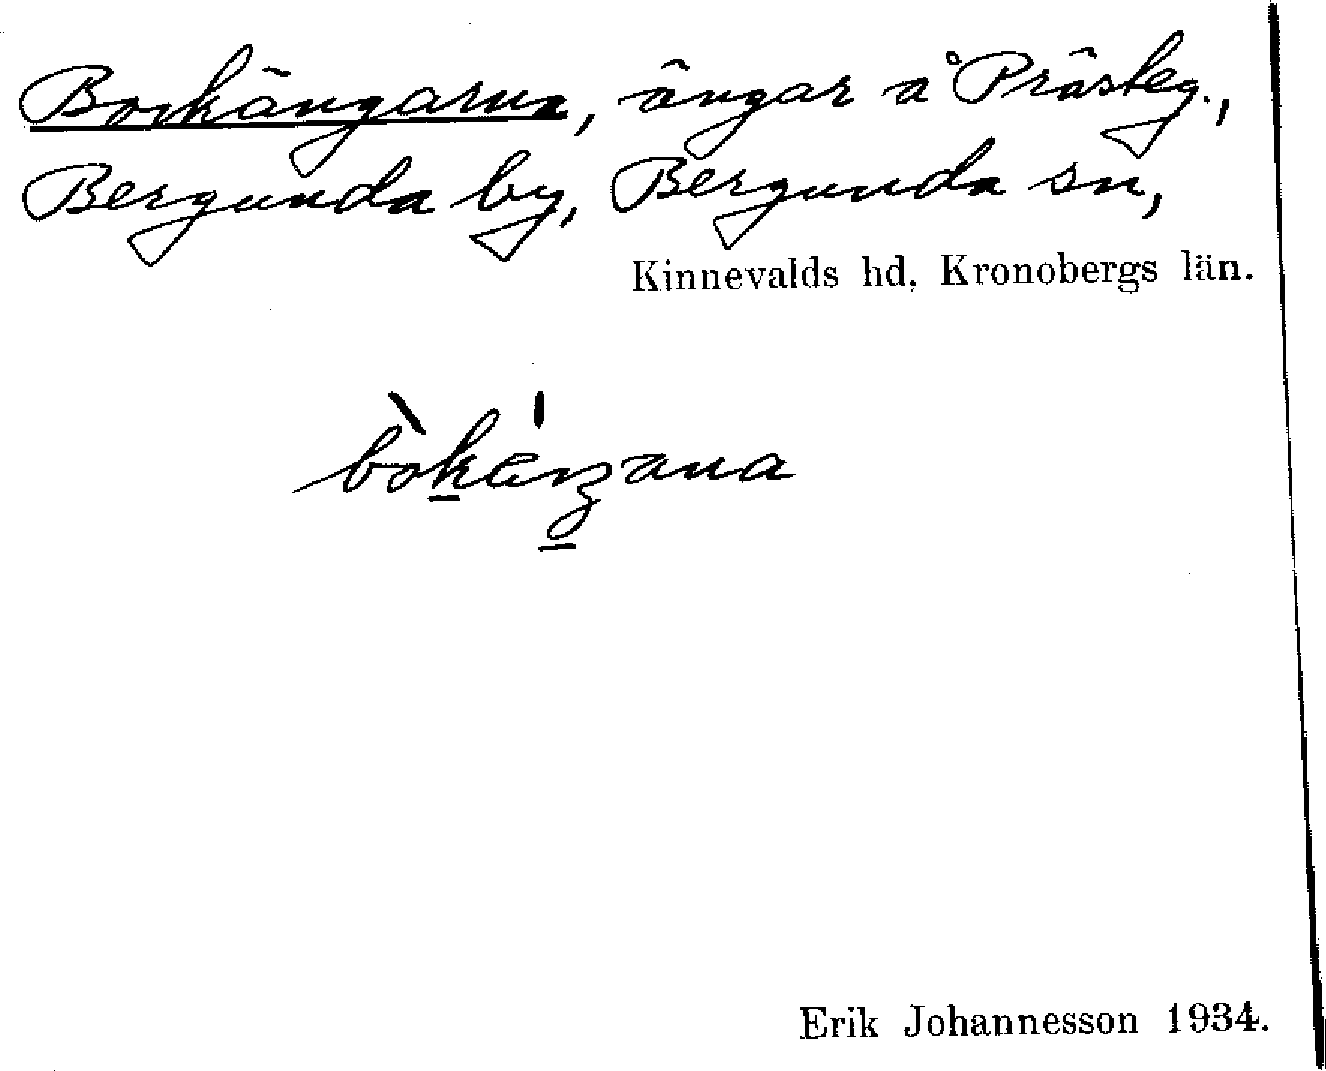 Bockängarna, ängar å Prästeg.,
Bergunda by, Bergunda sn,
Kinnevalds hd, Kronobergs län.
Erik Johannesson 1934.